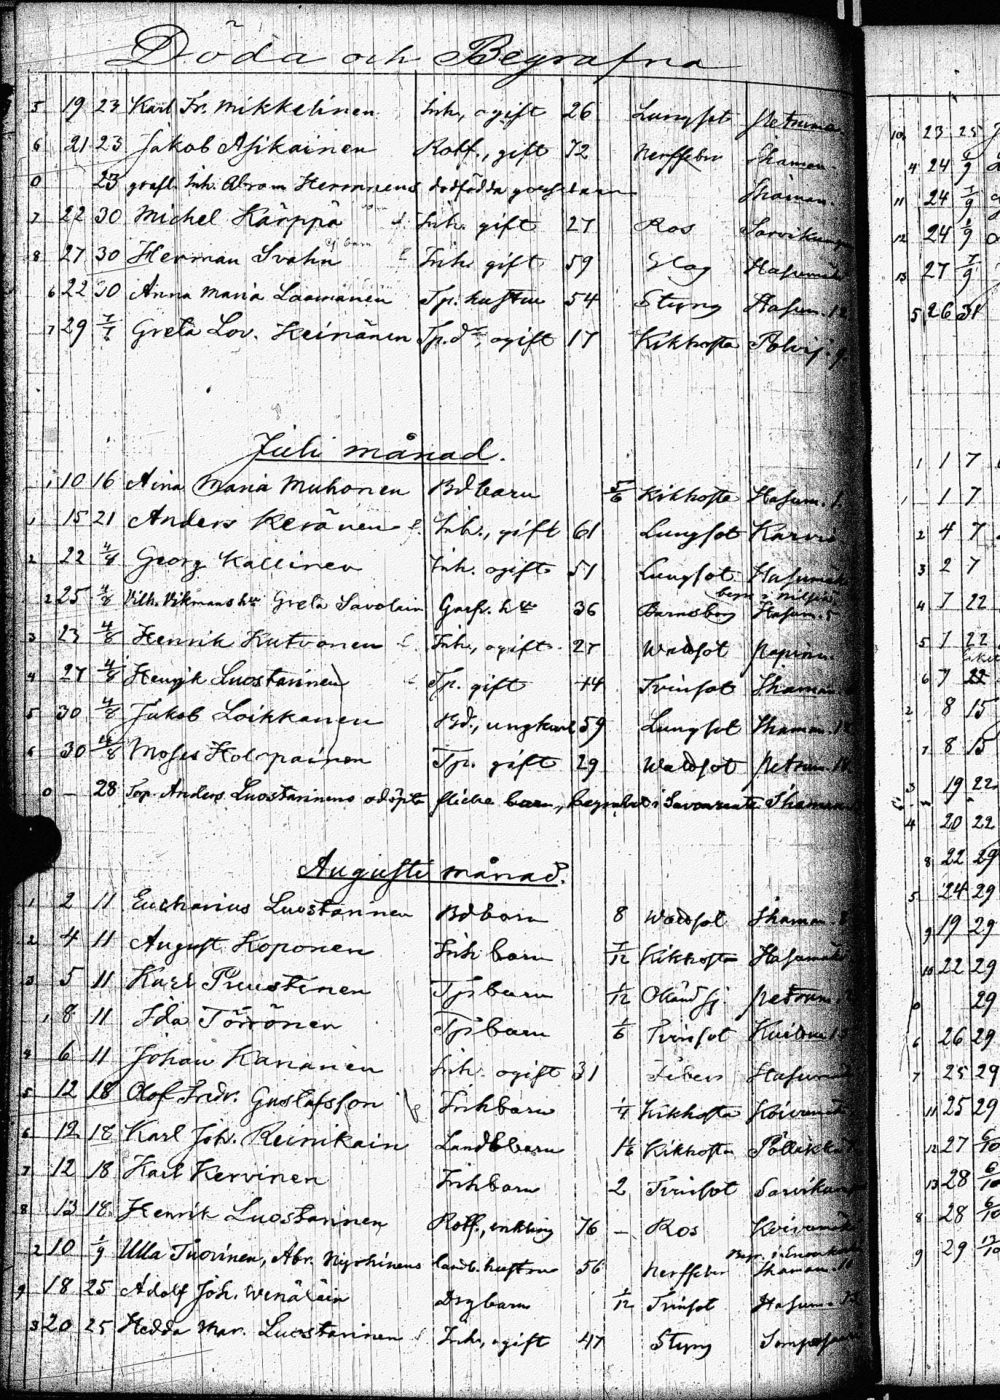 Döda och Begrafna
5 19 23 Karl Fr. Mikkelinen Inh., ogift 26 Lungsot Petruma
6 21 23 Jakob Asikainen Rotf., gift 72 Nervfeber Thaman.
0 23 Inh. Abram dödfödda
7 22 30 Michel Kärppä Inh. gift 27 Ros Sarvikum
8 27 30 Herman Svahn Inh. gift 59 Slag Hasumäki
6 22 30 Anna Maria Laamanen Tp. hustru 54 Styng Hasum. 12
7 29 7/7 Greta Lov. Heinänen Tp. dr, ogift 17 Kikhosta Polvij. 9
Juli månad.
1 10 16 Aina Maria Muhonen Bdbarn 5/6 Kikhosta Hasum. 1.
1 15 21 Anders Keränen Inh., gift 61 Lungsot Karvio
2 22 4/8 Georg Kallinen Inh. ogift 51 Lungsot Hasumäki
2 25 4/8 Vilh. Vikmans hu Greta Savolain 36 Barnsbörd Hasum. 5
3 23 4/8 Henrik Kutvonen Inh., ogift 27 Wattsot Papinn.
4 27 4/8 Henrik Luostarinen Tp. gift 44 Tvinsot Thaman
5 30 4/8 Jakob Loikkanen Bd., ungkarl 59 Lungsot Thaman. 12
6 30 4/8 Moses Holopainen Tp. gift 29 Wattsot Petrum. 18
0 – 28 Torp. Anders Luostarinens odöpta flicka barn, begrafvet i Savonranta Thaman
Augusti månad.
1 2 11 Eucharius Luostarinen Bdbarn 8 Wattsot Thaman. 8
2 4 11 August Koponen Inh barn 7/12 Kikhosta Hasumäki
3 5 11 Karl Puustinen Tjsbarn 1/12 Okänd sj Petrum.
1 8 11 Ida Törrönen Tjsbarn 1/6 Tvinsot
4 6 11 Johan Kananen Inh. ogift 31 Feber Hasumäki
5 12 18 Olof Fredr. Gustafsson Inhbarn 1/4 Kikhosta Koivumäki
6 12 18 Karl Joh. Reinikain Landbbarn Kikhosta Pölläkkä
7 12 18 Karl Kervinen Inhbarn 2 Tvinsot Sarvikumpu
8 13 18 Henrik Luostarinen Rotf., enkling 76 – Ros Koivumäki
2 10 1/9 Ulla Tuovinen, Abr. landb. hustru 56 Nervfeber Thaman.
9 18 25 Adolf Joh. Wenäläin Drgbarn 1/12 Tvinsot Hasum. 12
3 20 25 Hedda Mar. Luostarinen Inh., ogift 47 Styng
10 23 25
4 24 6/9
11 24 7/9
12 24 6/9
13 27 7/9
5 26 31
1 1 7
1 1 7
2 4 7
3 2 7
4 7 22
5 1 22
6 7 22
2 8 15
7 8 15
3 19 22
4 20 22
8 22 29
5 24 29
9 19 29
10 22 29
0 29
6 26 29
7 25 29
11 25 29
12 27 6/10
13 28 6/10
8 28 6/10
9 29 13/10